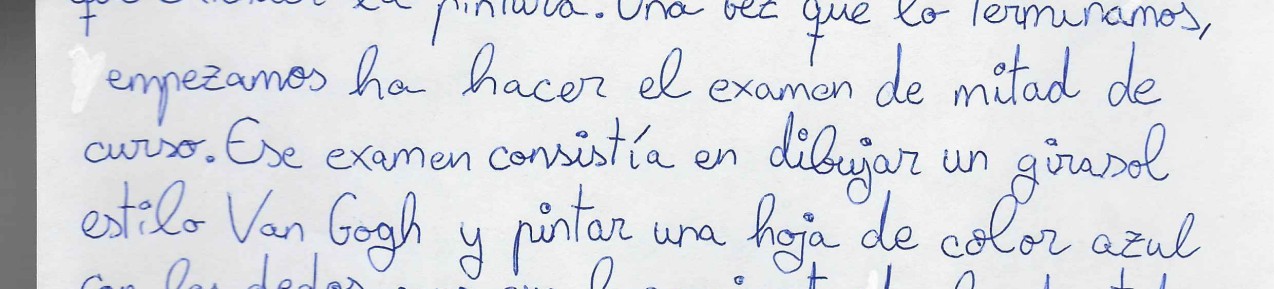 pintura. Una vez que lo terminamos,
empezamos ha hacer el examen de mitad de
curso. Ese examen consistía en dibujar un girasol
estilo Van Gogh y pintar una hoja de color azul
con los dedos